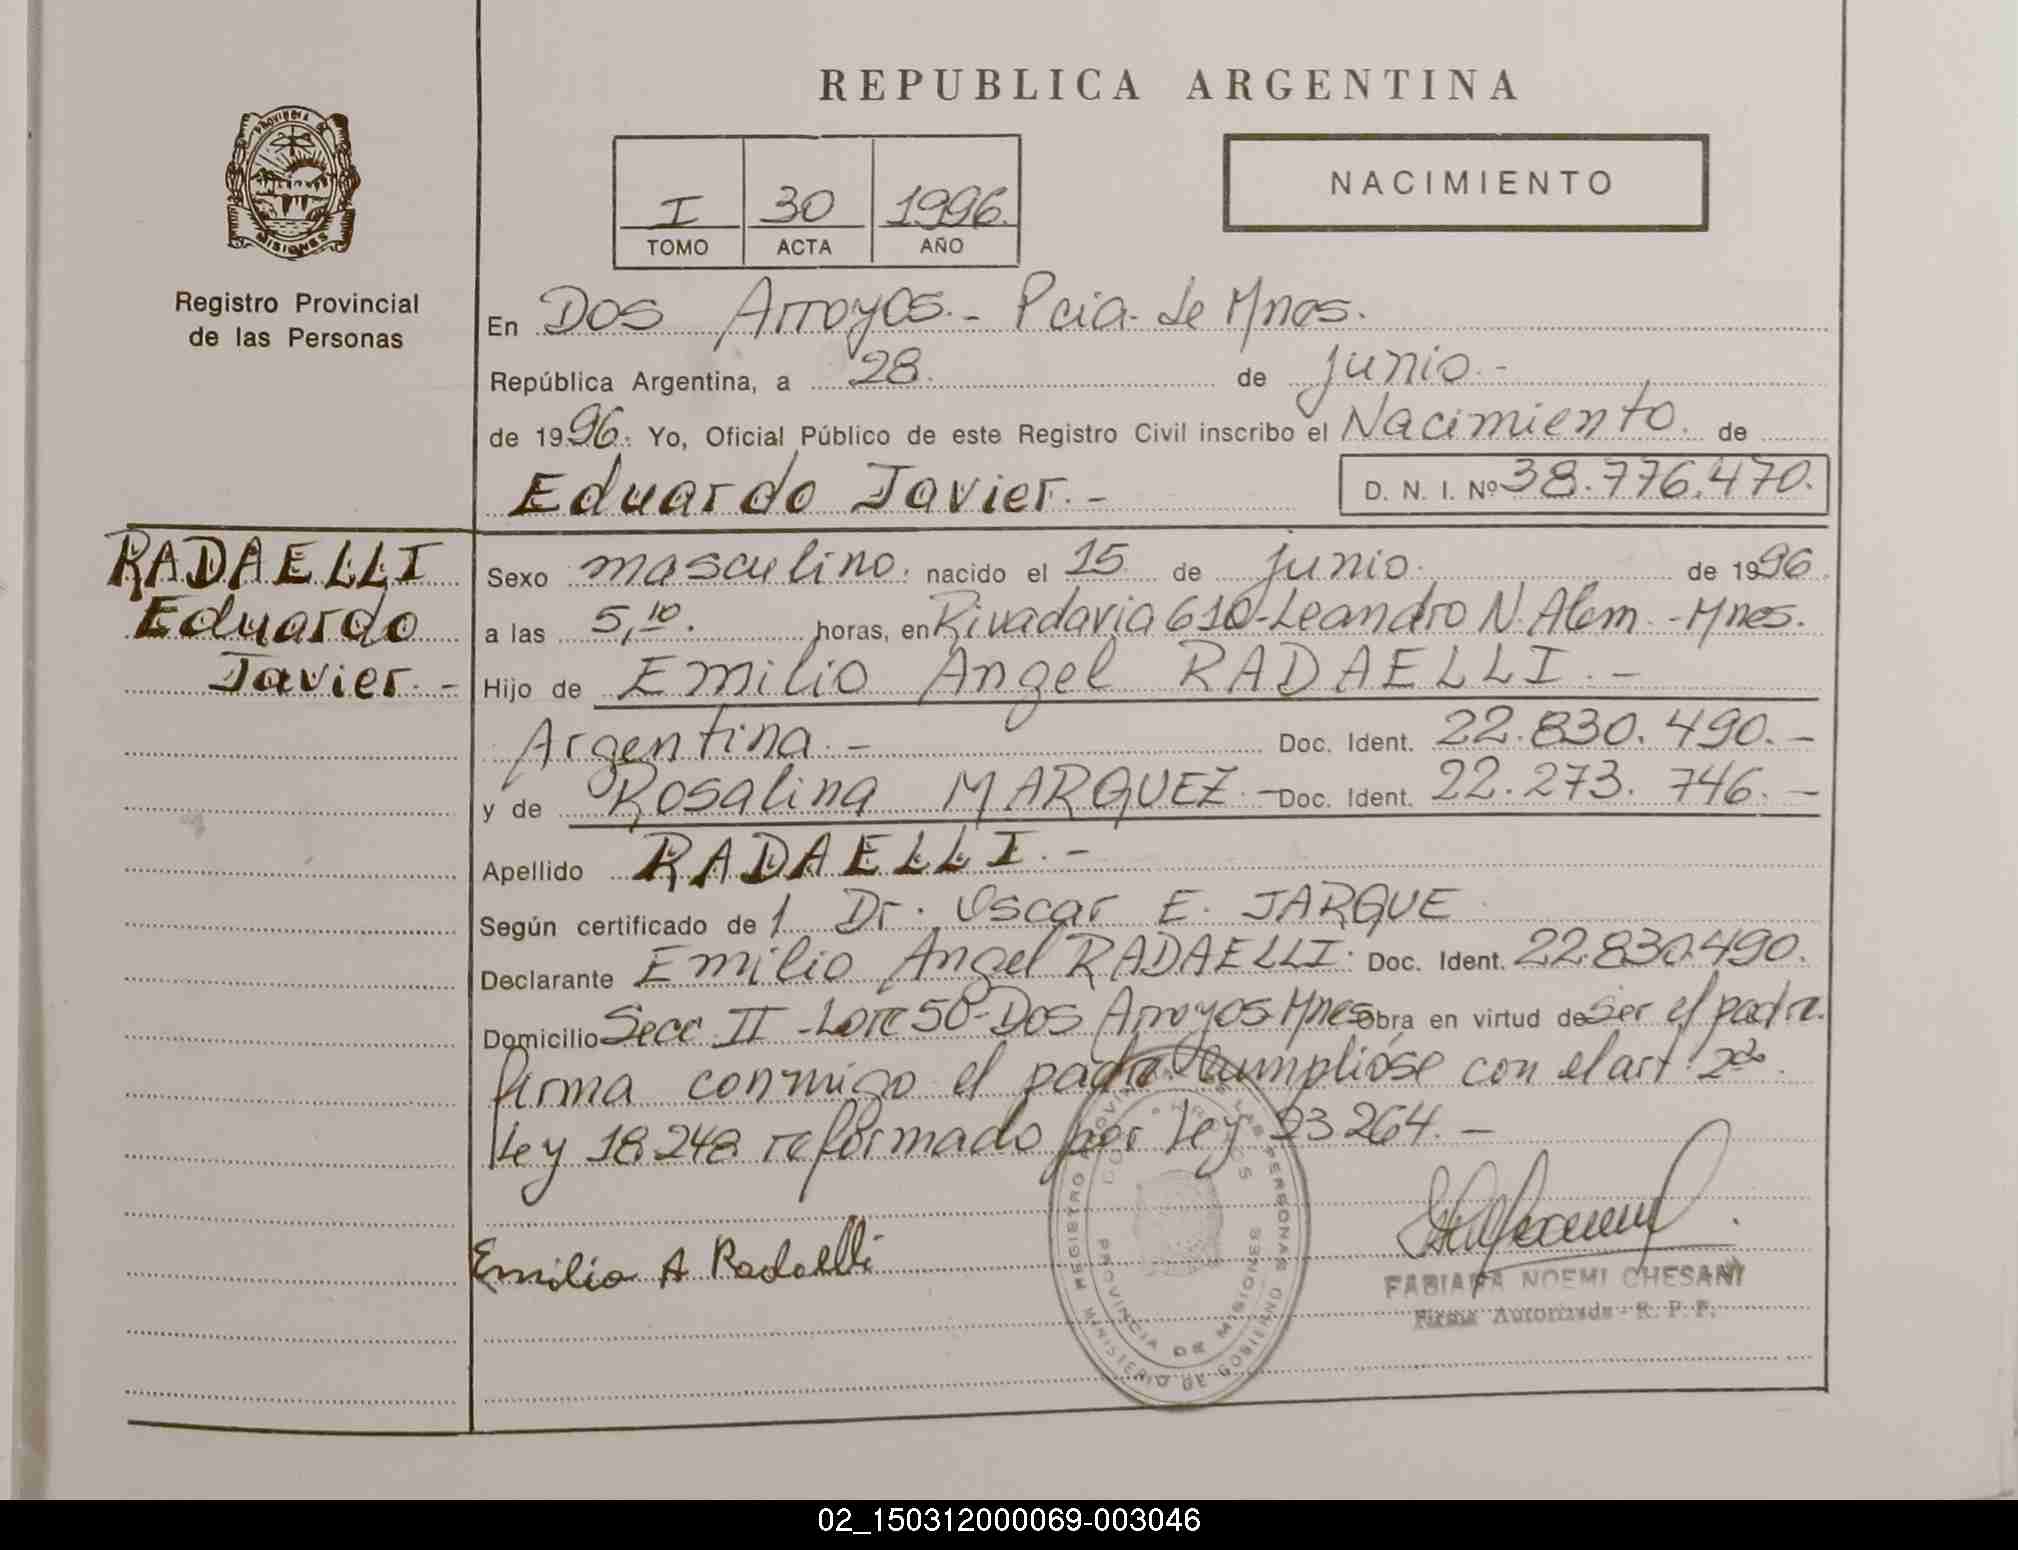 REPUBLICA ARGENTINA
PROVINCIA DE
MISIONES
Registro Provincial
de las Personas
I 30 1996.
TOMO ACTA AÑO
NACIMIENTO
En Dos Arroyos.- Pcia. de Mnes.
República Argentina, a 28. de junio.-
de 1996. Yo, Oficial Público de este Registro Civil inscribo el Nacimiento. de
Eduardo Javier.- D. N. I. Nº 38.776.470.
RADAELLI
Eduardo
Javier.-
Sexo masculino. nacido el 15 de junio. de 1996.
a las 5,10. horas, en Rivadavia 610-Leandro N. Alem.-Mnes.
Hijo de Emilio Angel RADAELLI.-
Argentina.- Doc. Ident. 22.830.490.-
y de Rosalina MARQUEZ.- Doc. Ident. 22.273.746.-
Apellido RADAELLI.-
Según certificado de 1 Dr. Oscar E. JARQUE
Declarante Emilio Angel RADAELLI. Doc. Ident. 22.830.490.
Domicilio Secc. II -Lote 50-Dos Arroyos Mnes Obra en virtud de ser el padre.
firma conmigo el padre. Cumplióse con el art. 2do.
Ley 18248 reformado por Ley 23264.-
Emilio A Radaelli
REGISTRO PROVINCIAL DE LAS PERSONAS
MINISTERIO DE GOBIERNO
DOS ARROYOS
PROVINCIA DE MISIONES
FABIANA NOEMI CHESANI
Firma Autorizada - R. P. P.
02_150312000069-003046